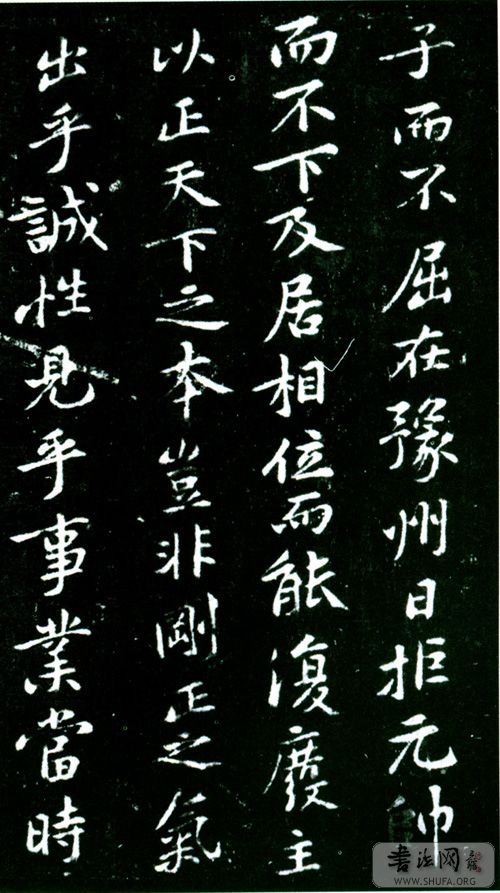 子而不屈在豫州日拒元帥
而不下及居相位而能復廢主
以正天下之本豈非剛正之氣
出乎誠性見乎事業當時
書法网
WWW.SHUFA.ORG